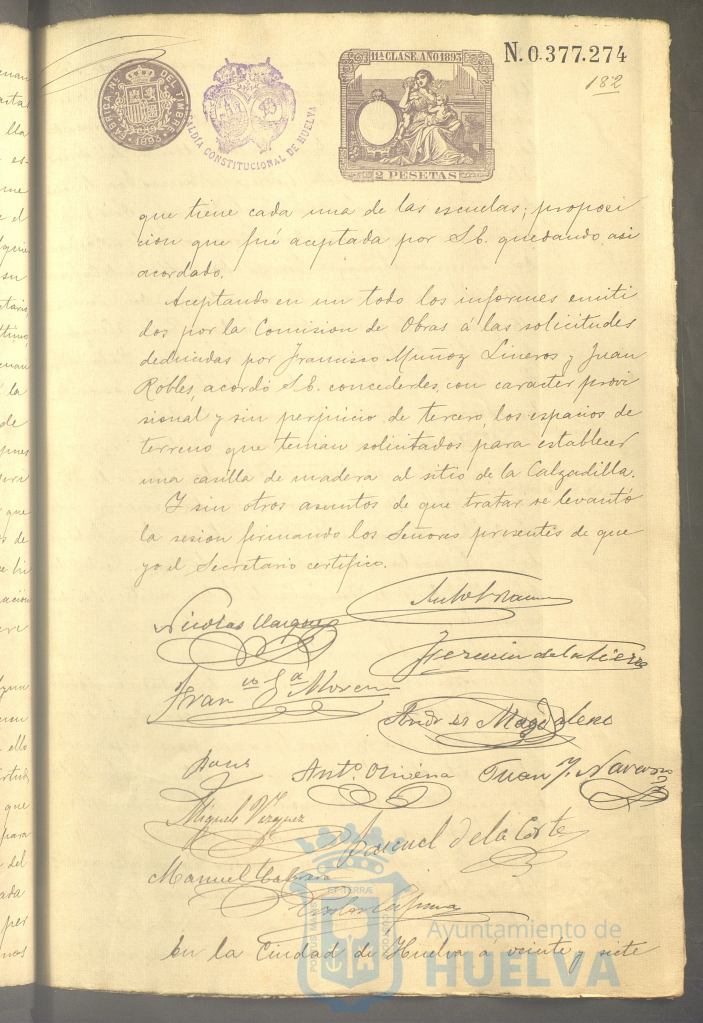 FABRICA NAL. DEL TIMBRE
1893
ALCALDIA CONSTITUCIONAL DE HUELVA
11ª CLASE. AÑO 1893
2 PESETAS
N. 0.377.274
182
que tiene cada una de las escuelas; proposi
cion que fué aceptada por S.E. quedando asi
acordado.
Aceptando en un todo los informes emiti
dos por la Comision de Obras á las solicitudes
deducidas por Francisco Muñoz Lineros y Juan
Robles, acordó S.E. concederles, con caracter provi
sional y sin perjuicio de tercero, los espacios de
terreno que tenian solicitados para establecer
una casilla de madera al sitio de la Calzadilla.
Y sin otros asuntos de que tratar se levantó
la sesion firmando los Señores presentes de que
yo el Secretario certifico.
Nicolas Vazquez
Fermin de la Sierra
Franco Ga Moreno
Andres Magdaleno
Anto. Oliveira Juan J. Navarro
Miguel Vazquez
Manuel de la Corte
Manuel
En la Ciudad de Huelva á veinte y siete
PORTUS MARIS ET TERRÆ CUSTODIA
Ayuntamiento de
HUELVA